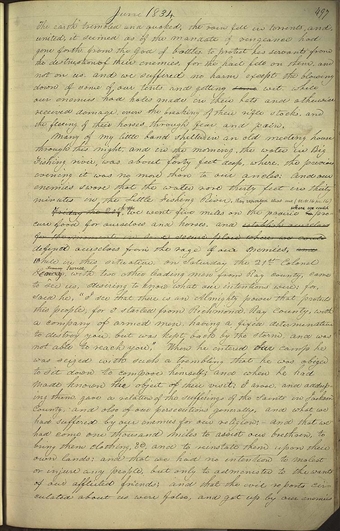 June 1834
497
the earth trembled and quaked, the rain fell in torrents, and
united, it seemed as if the mandate of vengeance had
gone forth from the God of battles to protect his servants from
the destruction of their enemies, for the hail fell on them, and
not on us, and we suffered no harm except the blowing
down of some of our tents and getting wet, while
our enemies had holes made in their hats and otherwise
received damage, even the breaking of their rifle stocks, and
the fleeing of their horses through fear and pain.
Many of my little band sheltered in an old meeting house
through this night, and in the morning, the water in Big
Fishing river was about forty feet deep, where the previous
evening it was no more than to our ancles: And our
enemies swore that the water rose thirty feet in thirty
minutes in the Little Fishing River.
we went five miles on the prairie
procure food for ourselves and horses, and establish ourselves
defend ourselves from the rage of our enemies,
while in this situation on Saturday the 21st Colonel
with two other leading men from Ray county, came
to see us, desiring to know what our intentions were; for,
said he, "I see that there is an Almighty power that protects
this people, for I started from Richmond, Ray county, with
a company of armed men, having a fixed determination
to destroy you, but was kept back by the storm and was
not able to reach you." When he entered the camp he
was seized with such a trembling that he was obliged
to sit down to compose himself; and when he had
made known the object of their visit, I arose, and address
ing them gave a relation of the sufferings of the Saints in Jackson
County, and also of our persecutions generally, and what we
had suffered by our enemies for our religion; and that we
had come one thousand miles to assist our brethren, to
bring them clothing, &c and to reinstate them upon their
own lands; and that we had no intention to molest
or injure any people, but only to administer to the wants
of our afflicted friends; and that the evil reports cir
culated about us were false, and got up by our enemies